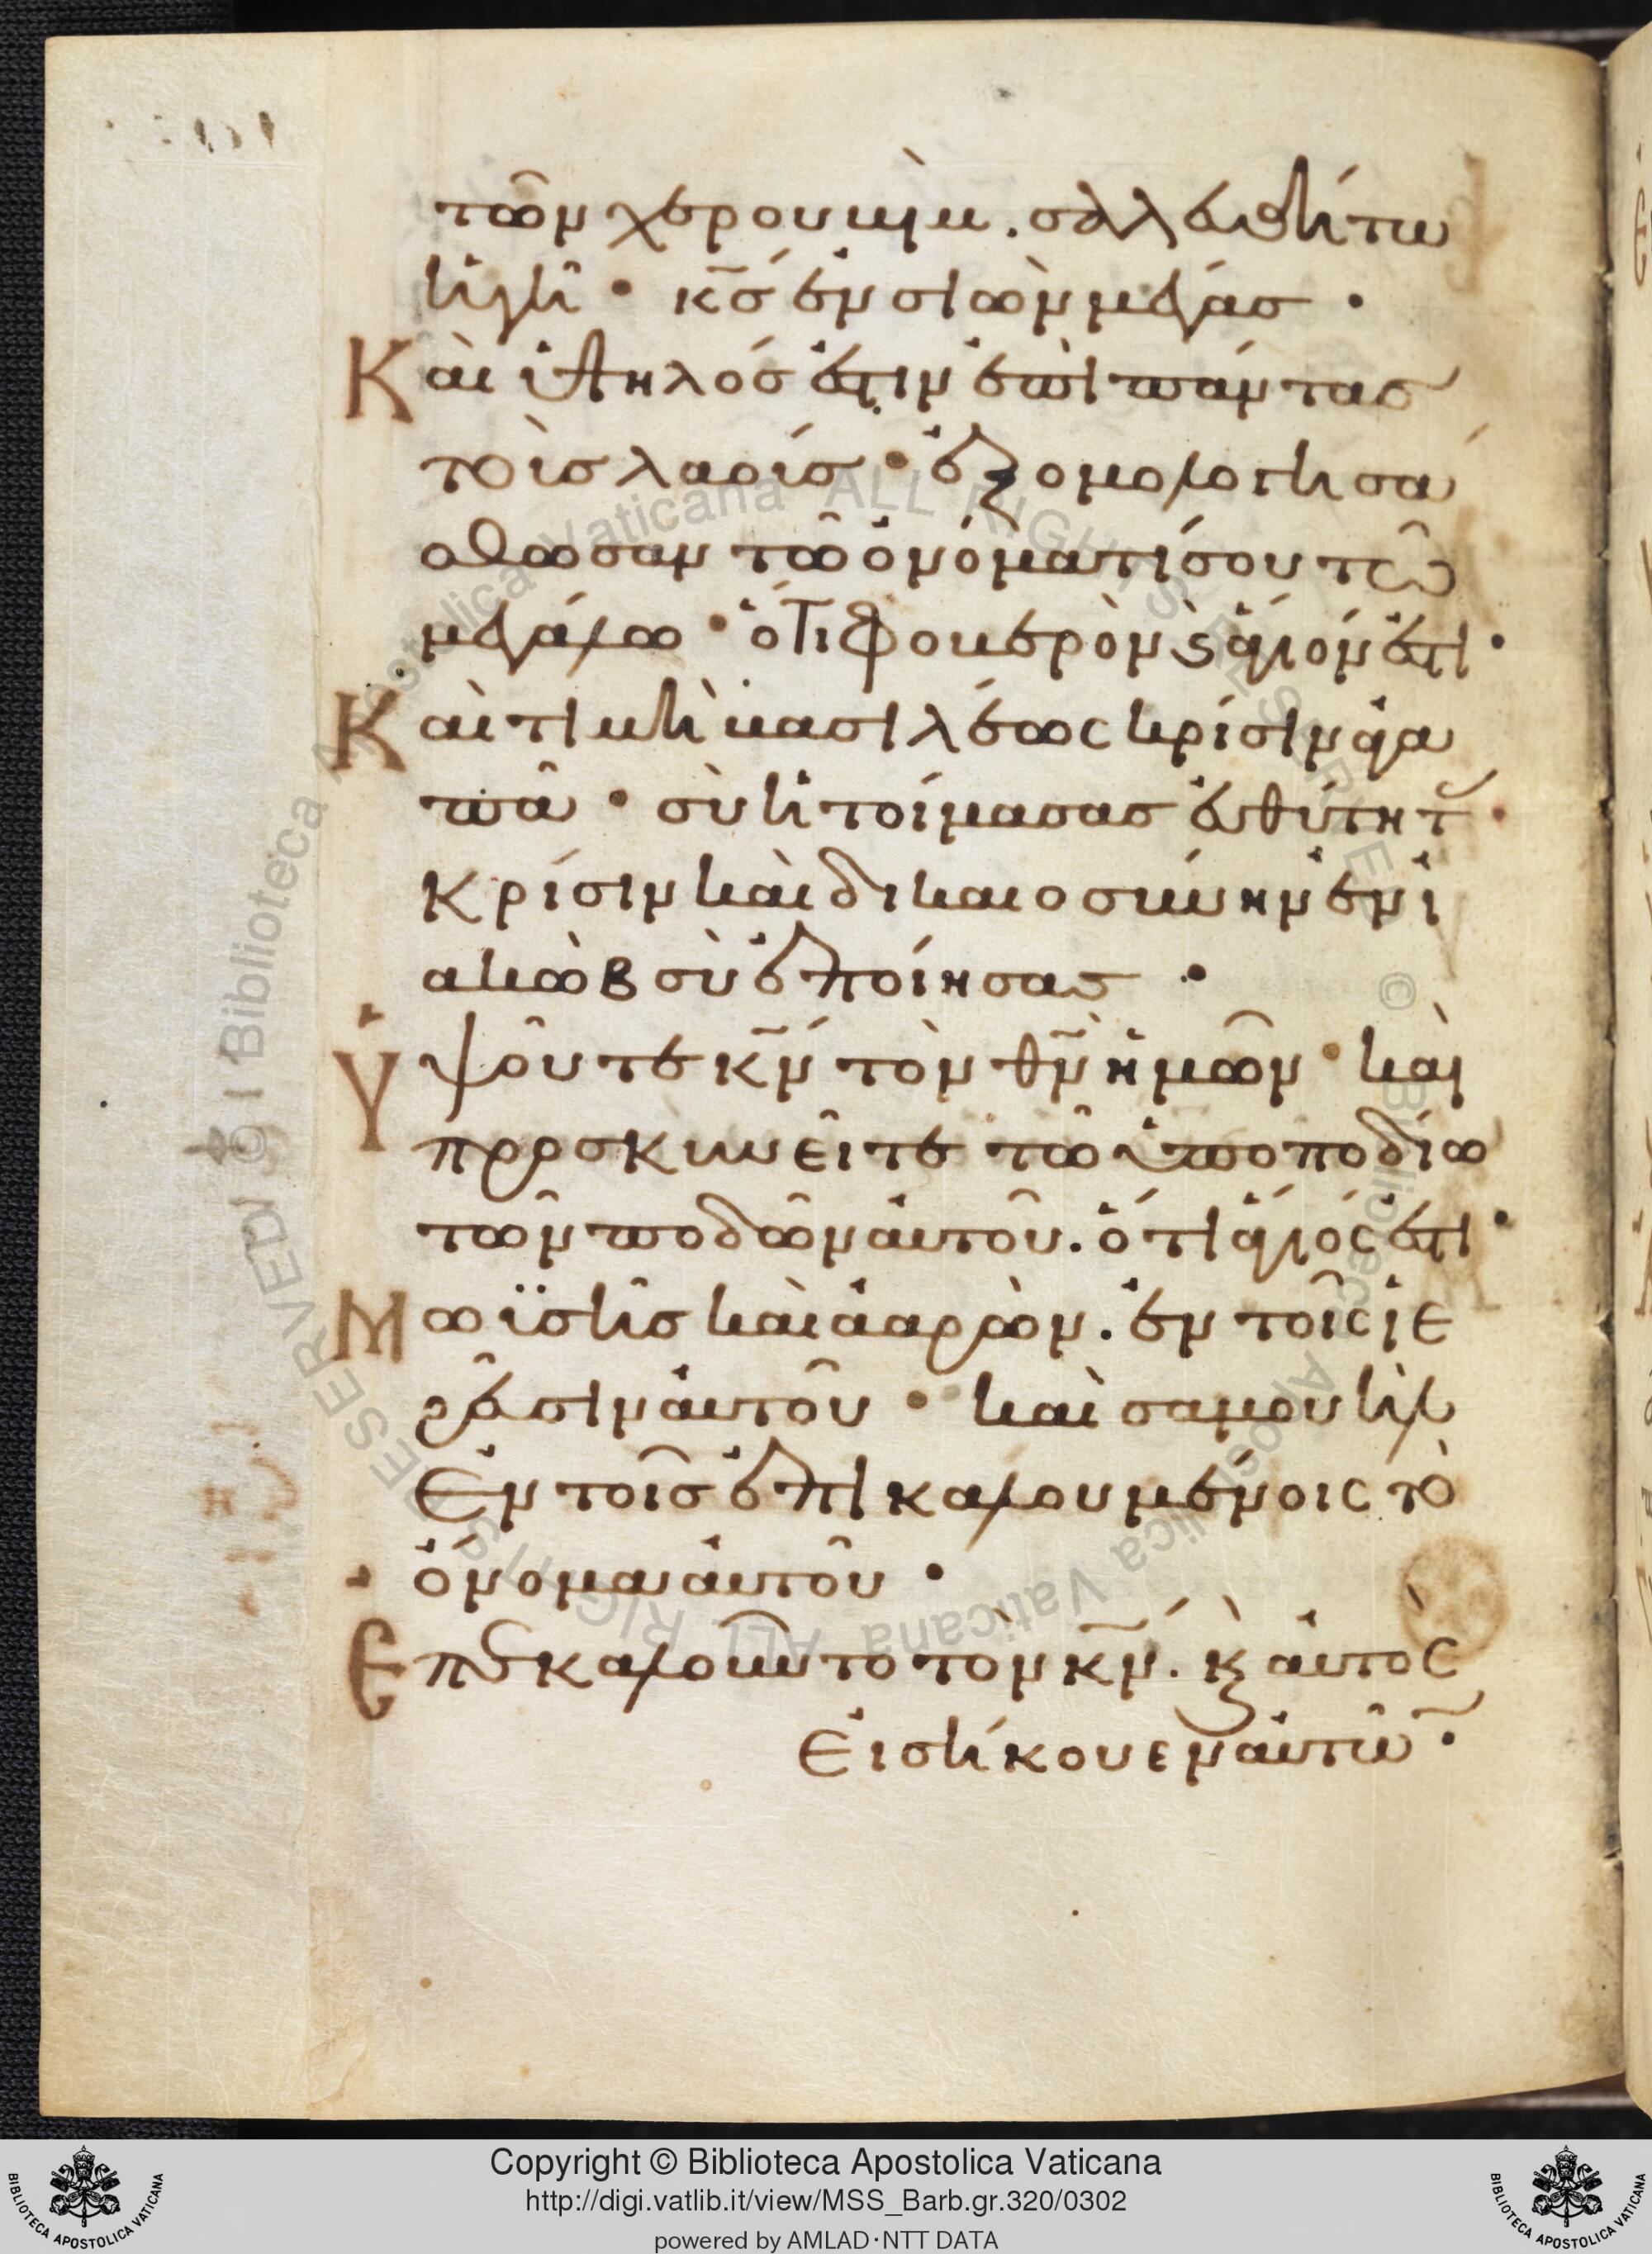 τῶν χερουβὶμ. σαλευθήτω
ἡ γῆ · κς̅ ἐν σιὼν μέγας ·
Καὶ ὑψηλός ἐστιν ἐπὶ πάντας
τοὺς λαούς · ἐξομολογησά
σθωσαν τῶ ὀνόματί σου τῶ
μεγάλω · ὅτι φοβερὸν ϗ ἅγιόν ἐστι ·
Καὶ τιμὴ βασιλέως κρίσιν ἀγα
πᾶ · σὺ ἡτοίμασας εὐθύτητ(ας) ·
κρίσιν καὶ δικαιοσύνην ἐν ἰ
ακὼβ σὺ ἐποίησας ·
Ὑψοῦτε κν̅ τὸν θν̅ ἡμῶν · καὶ
προσκυνεῖτε τῶ ὑποποδίω
τῶν ποδῶν αὐτοῦ. ὅτι ἅγιός ἐστι ·
Μωϋσῆς καὶ ἀαρὼν. ἐν τοῖς ἱε
ρεῦσιν αὐτοῦ · καὶ σαμουὴλ
ἐν τοῖς ἐπικαλουμένοις τὸ
ὄνομα αὐτοῦ ·
Ἐπεκαλοῦντο τὸν κν̅. ϗ αὐτὸς
εἰσήκουεν αὐτῶ(ν) ·
Copyright © Biblioteca Apostolica Vaticana
http://digi.vatlib.it/view/MSS_Barb.gr.320/0302
powered by AMLAD·NTT DATA
BIBLIOTECA APOSTOLICA VATICANA
BIBLIOTECA APOSTOLICA VATICANA
© Biblioteca Apostolica Vaticana ALL RIGHTS RESERVED
© Biblioteca Apostolica Vaticana ALL RIGHTS RESERVED